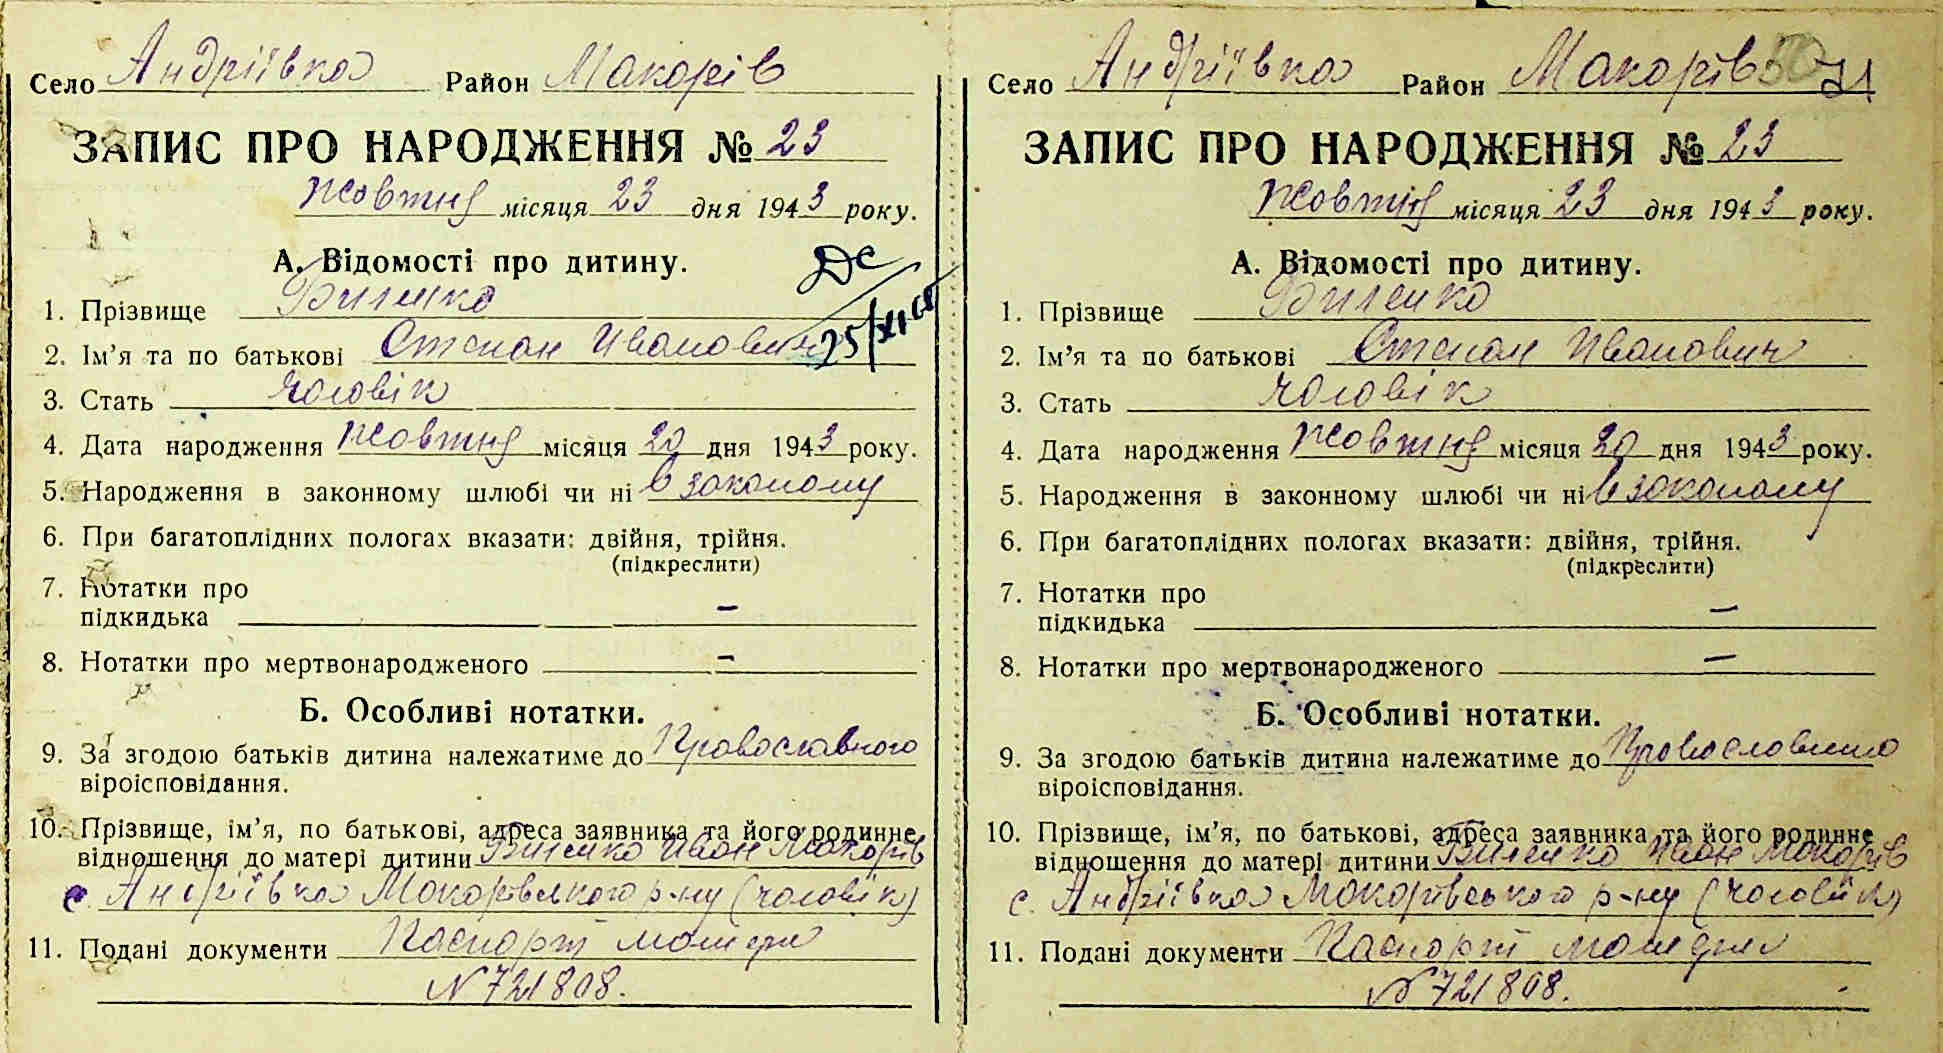 Село Андріївка Район Макарів
ЗАПИС ПРО НАРОДЖЕННЯ № 23
Жовтня місяця 23 дня 1943 року.
А. Відомості про дитину.
ДС
25/XI 60
1. Прізвище Биленко
2. Ім’я та по батькові Степан Иванович
3. Стать чоловік
4. Дата народження Жовтня місяця 20 дня 1943 року.
5. Народження в законному шлюбі чи ні в законому
6. При багатоплідних пологах вказати: двійня, трійня.
(підкреслити)
7. Нотатки про
підкидька —
8. Нотатки про мертвонародженого —
Б. Особливі нотатки.
9. За згодою батьків дитина належатиме до Православного
віроісповідання.
10. Прізвище, ім’я, по батькові, адреса заявника та його родинне
відношення до матері дитини Биленко Иван Макарів
с. Андріївка Макарівського р-ну (чоловік)
11. Подані документи Паспорт матери
N 721808.
Село Андріївка Район Макарів 71
ЗАПИС ПРО НАРОДЖЕННЯ № 23
Жовтня місяця 23 дня 1943 року.
А. Відомості про дитину.
1. Прізвище Биленко
2. Ім’я та по батькові Степан Иванович
3. Стать чоловік
4. Дата народження Жовтня місяця 20 дня 1943 року.
5. Народження в законному шлюбі чи ні в законому
6. При багатоплідних пологах вказати: двійня, трійня.
(підкреслити)
7. Нотатки про
підкидька —
8. Нотатки про мертвонародженого —
Б. Особливі нотатки.
9. За згодою батьків дитина належатиме до Православного
віроісповідання.
10. Прізвище, ім’я, по батькові, адреса заявника та його родинне
відношення до матері дитини Биленко Иван Макарів
с. Андріївка Макарівського р-ну (чоловік)
11. Подані документи Паспорт матери
N 721808.